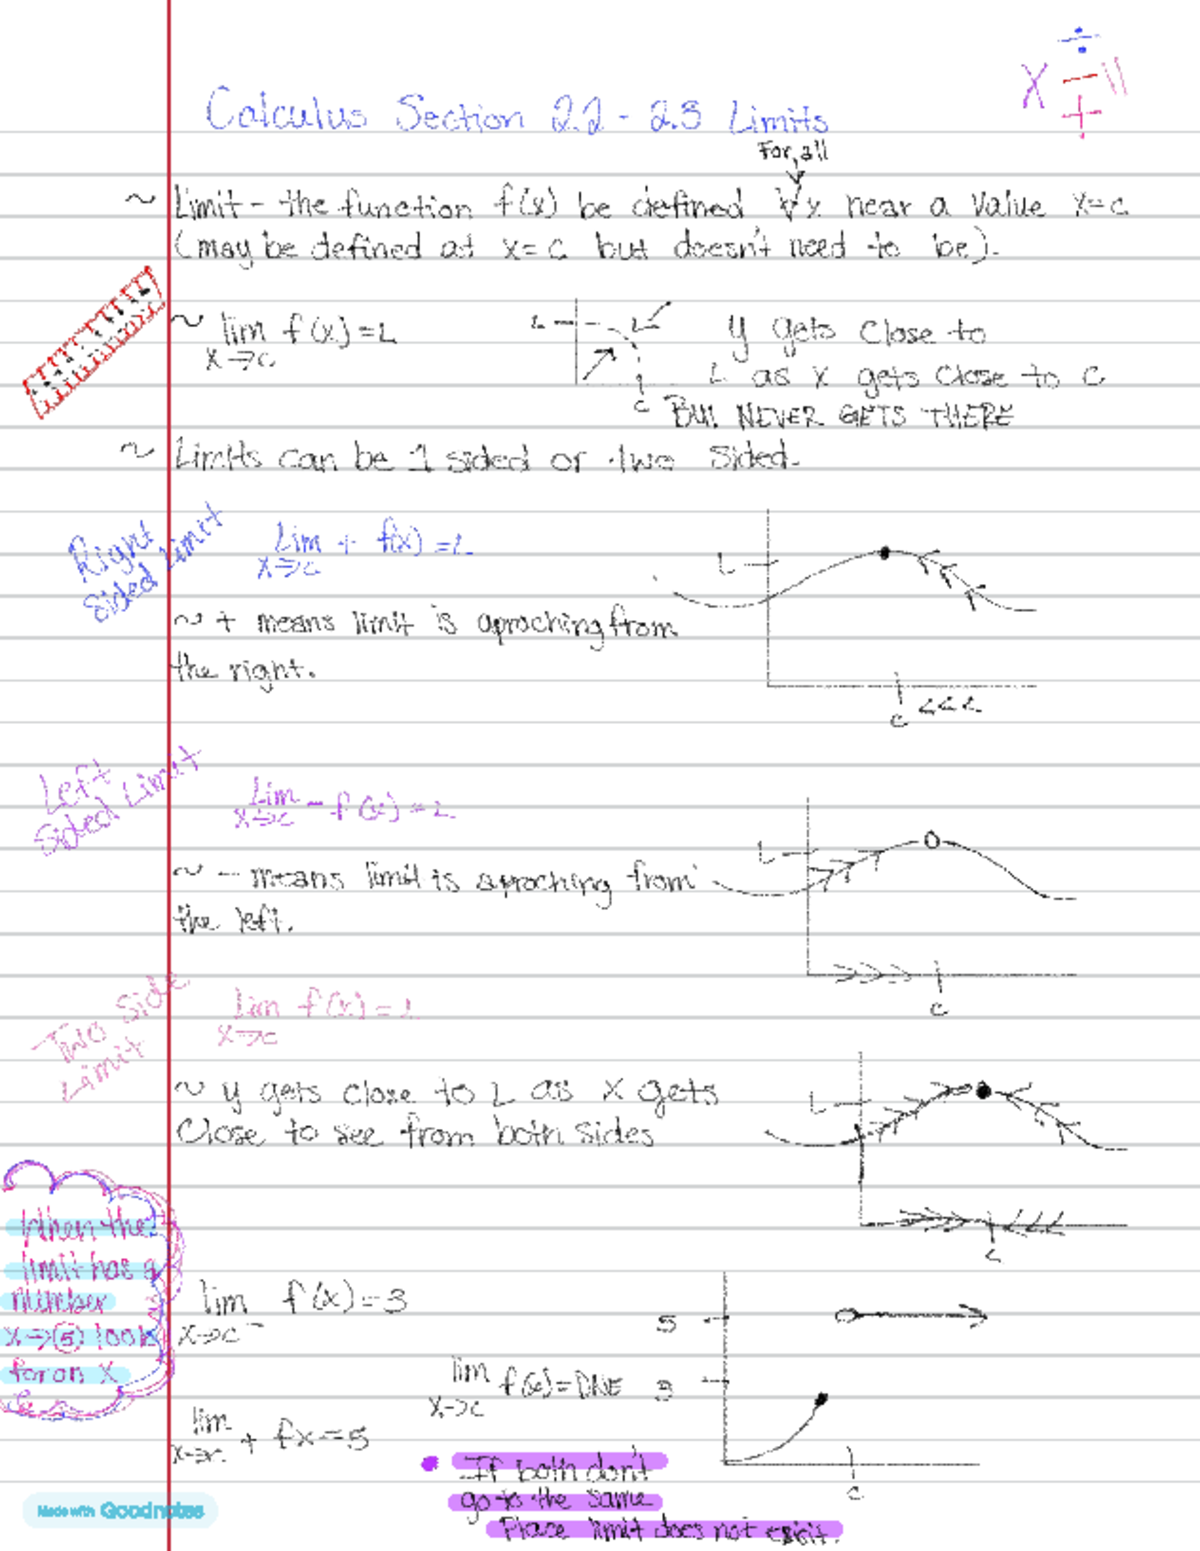 ÷
X − =
+
Calculus Section 2.2 - 2.3 Limits
For all
~ Limit - the function f(x) be defined ∀x near a value x=c
(may be defined at x=c but doesn't need to be).
~ lim f(x)=L
x→c
L
c
y gets close to
L as x gets close to c
BUT NEVER GETS THERE
~ Limits can be 1 sided or two sided.
Right
Sided Limit
Lim + f(x) = L
x→c
~ + means limit is aproching from
the right.
L
c <<<
Left
Sided Limit
Lim - f(x) = L
x→c
~ - means limit is aproching from
the left.
L
>>>
c
Two Side
Limit
Lim f(x) = L
x→c
~ y gets close to L as x gets
Close to see from both sides
L
c
When the
limit has a
number
x→(5) look
for on X
lim f(x)=3
x→c⁻
lim f(x)=DNE
x→c
lim + fx=5
x→c
5
3
c
• If both don't
go to the same
Place limit does not exist.
Made with Goodnotes